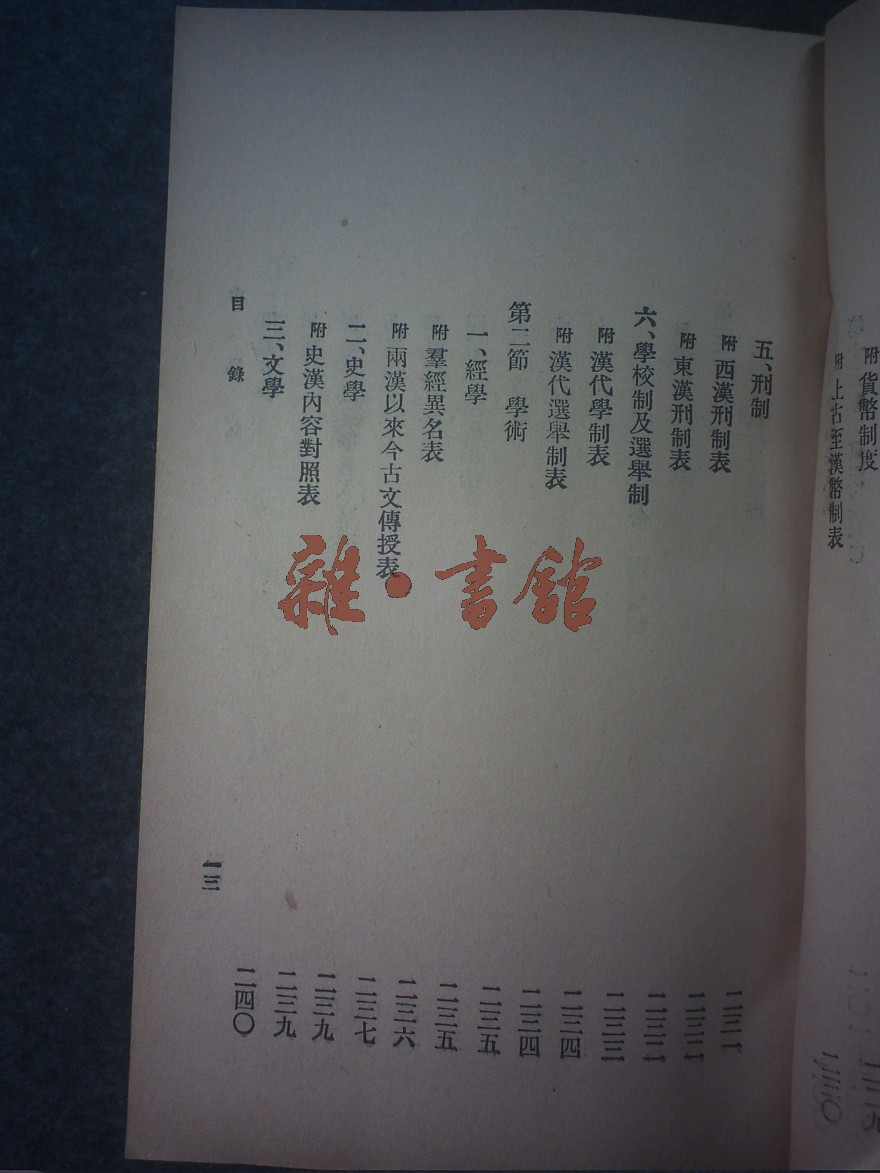 附 貨幣制度
附 上古至漢幣制表
五、刑制 二三一
附 西漢刑制表 二三二
附 東漢刑制表 二三二
六、學校制及選舉制 二三三
附 漢代學制表 二三四
附 漢代選舉制表 二三四
第二節 學術 二三五
一、經學 二三五
附 羣經異名表 二三六
附 兩漢以來今古文傳授表 二三七
二、史學 二三九
附 史漢內容對照表 二三九
三、文學 二四〇
目錄
一三
雜·書館